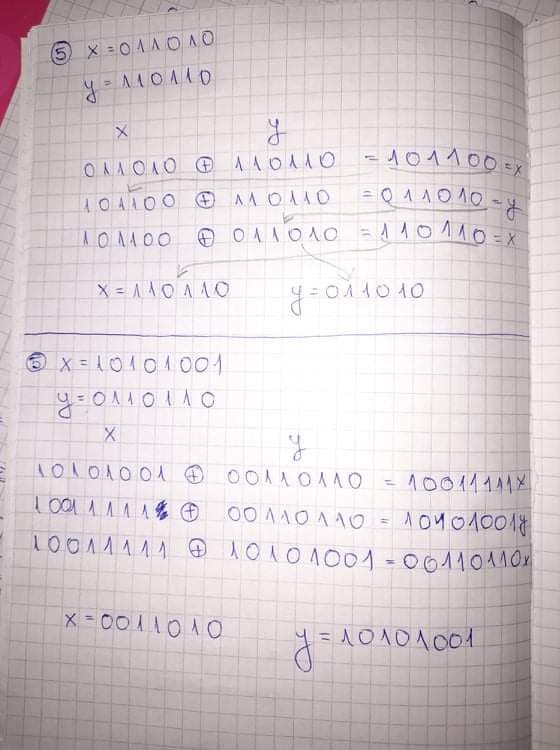 ⑤ x = 011010
y = 110110
x y
011010 ⊕ 110110 = 101100 = x
101100 ⊕ 110110 = 011010 = y
101100 ⊕ 011010 = 110110 = x
x = 110110 y = 011010
⑤ x = 10101001
y = 0110110
x y
10101001 ⊕ 00110110 = 10011111x
10011111 ⊕ 00110110 = 10101001y
10011111 ⊕ 10101001 = 00110110x
x = 0011010 y = 10101001